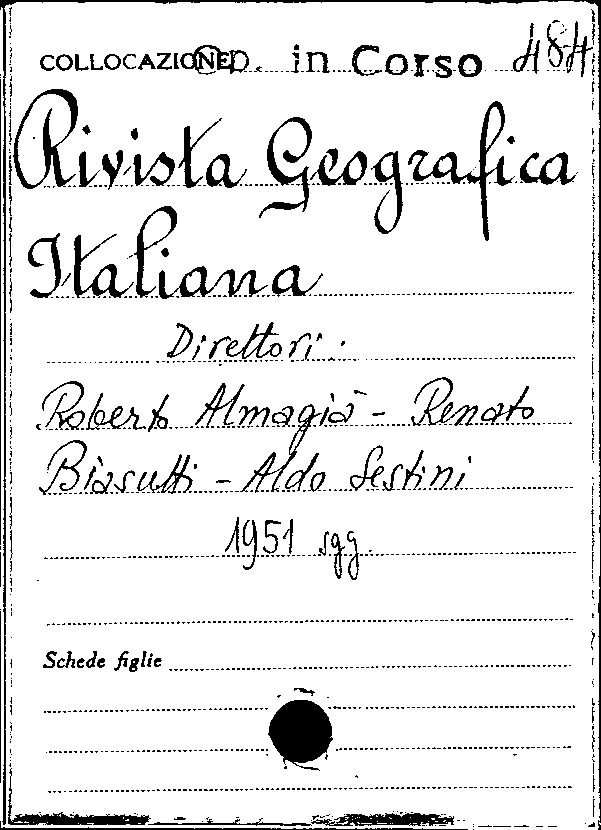 COLLOCAZIONE P. in Corso 484
Rivista Geografica
Italiana
Direttori:
Roberto Almagià - Renato
Biasutti - Aldo Sestini
1951 sgg.
Schede figlie